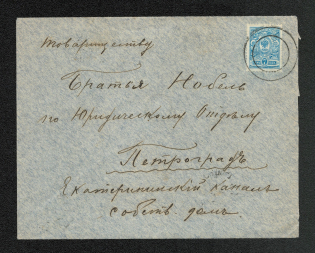 Товариществу
Братья Нобель
по Юридическому Отделу
Петроградъ
Екатерининскій каналъ
собств домъ.